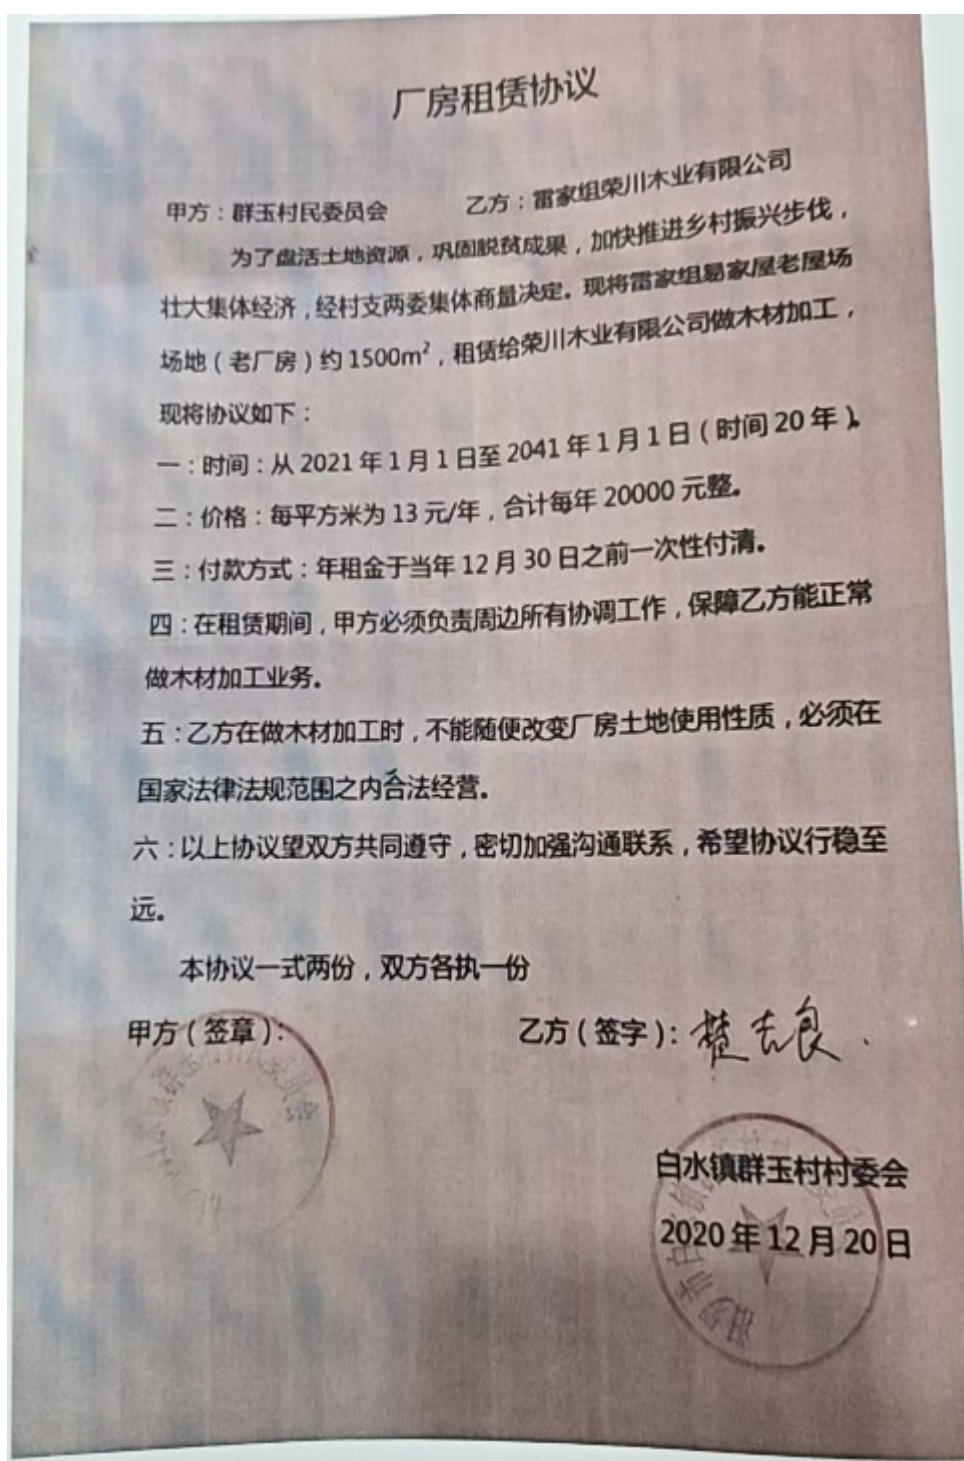 厂房租赁协议
甲方：群玉村民委员会 乙方：雷家组荣川木业有限公司
为了盘活土地资源，巩固脱贫成果，加快推进乡村振兴步伐，
壮大集体经济，经村支两委集体商量决定。现将雷家组易家屋老屋场
场地（老厂房）约1500m²，租赁给荣川木业有限公司做木材加工，
现将协议如下：
一：时间：从2021年1月1日至2041年1月1日（时间20年）。
二：价格：每平方米为13元/年，合计每年20000元整。
三：付款方式：年租金于当年12月30日之前一次性付清。
四：在租赁期间，甲方必须负责周边所有协调工作，保障乙方能正常
做木材加工业务。
五：乙方在做木材加工时，不能随便改变厂房土地使用性质，必须在
国家法律法规范围之内合法经营。
六：以上协议望双方共同遵守，密切加强沟通联系，希望协议行稳至
远。
本协议一式两份，双方各执一份
甲方（签章）： 乙方（签字）：
白水镇群玉村村委会
2020年12月20日